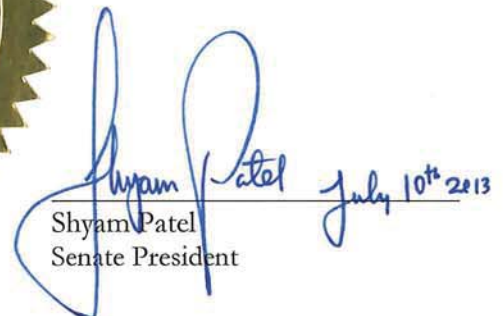 Shyam Patel July 10th 2013
Shyam Patel
Senate President